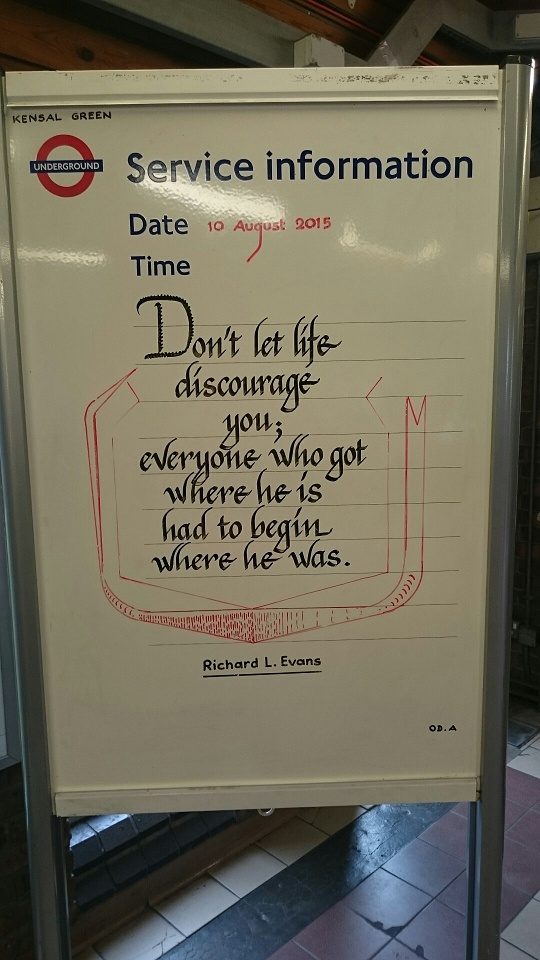 KENSAL GREEN
UNDERGROUND
Service information
Date 10 August 2015
Time
Don't let life
discourage
you;
everyone who got
where he is
had to begin
where he was.
Richard L. Evans
OD.A